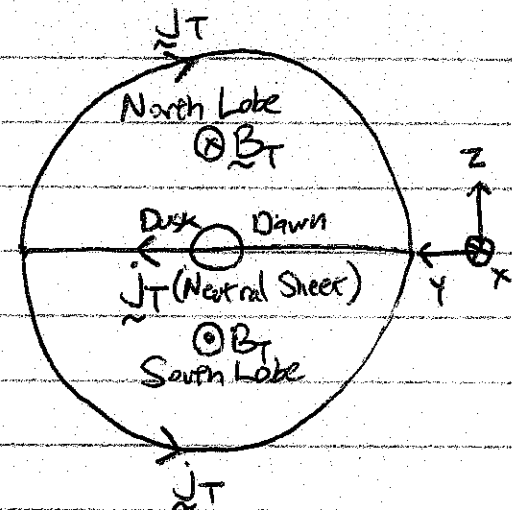 jT
North Lobe
BT
Z
Dusk Dawn
jT (Neutral Sheet)
Y X
BT
South Lobe
jT